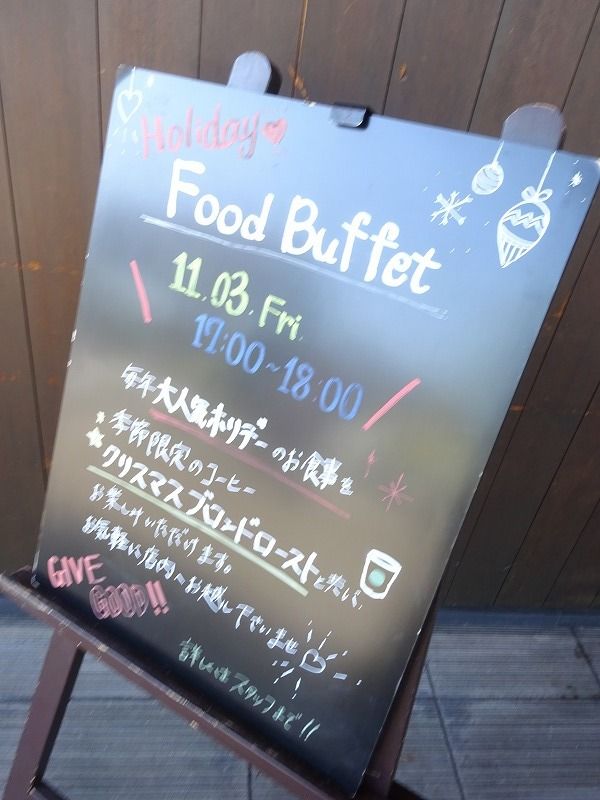 Holiday
Food Buffet
11.03.Fri.
17:00~18:00
毎年大人気ホリデーのお食事を
季節限定のコーヒー
クリスマスブロンドローストと共に
お楽しみいただけます。
お気軽に店内へお越し下さいませ
GIVE
GOOD!!
詳しくはスタッフまで!!